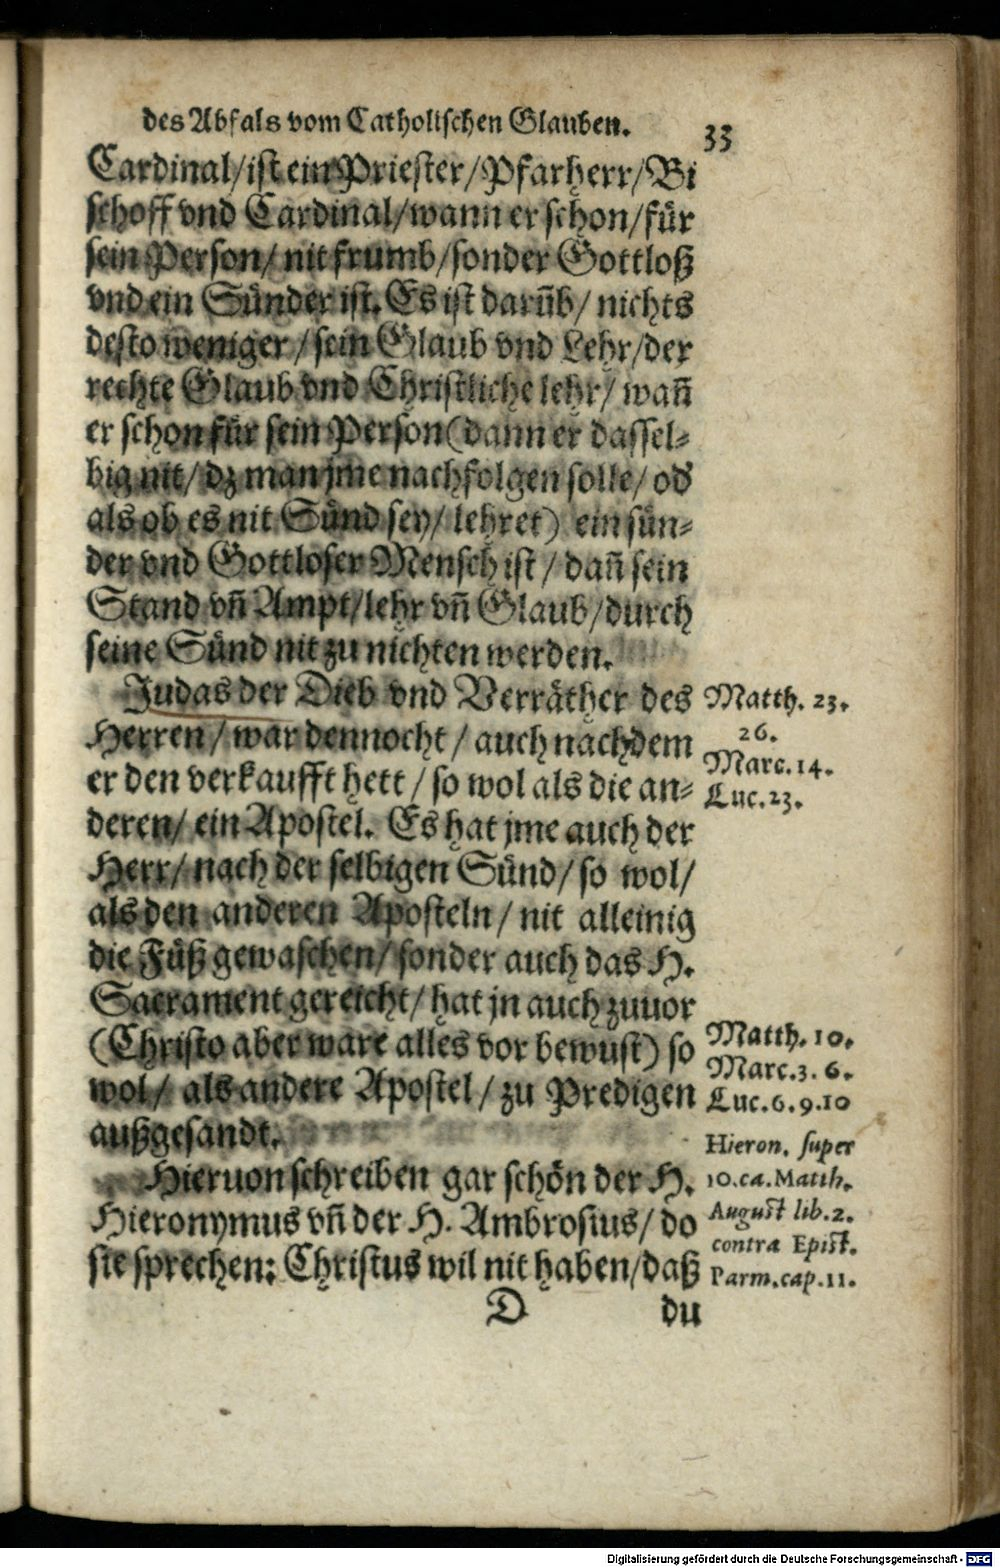 des Abfals vom Catholischen Glauben. 33
Cardinal/ist ein Priester/Pfarherr/Bi
schoff vnd Cardinal/wann er schon/für
sein Person/nit frumb/sonder Gottloß
vnd ein Sünder ist. Es ist darūb/nichts
desto weniger/sein Glaub vnd Lehr/der
rechte Glaub vnd Christliche lehr/wañ
er schon für sein Person(dann er dassel-
big nit/dz man jme nachfolgen solle/od
als ob es nit Sünd sey/lehret) ein sün-
der vnd Gottloser Mensch ist/dañ sein
Stand vñ Ampt/lehr vñ Glaub/durch
seine Sünd nit zu nichten werden.
Judas der Dieb vnd Verräther des
Herren/war dennocht/auch nachdem
er den verkaufft hett/so wol als die an-
deren/ein Apostel. Es hat jme auch der
Herr/nach der selbigen Sünd/so wol/
als den anderen Aposteln/nit alleinig
die Füß gewaschen/sonder auch das H.
Sacrament gereicht/hat jn auch zuuor
(Christo aber ware alles vor bewust) so
wol/als andere Apostel/zu Predigen
außgesandt.
Hieruon schreiben gar schön der H.
Hieronymus vñ der H. Ambrosius/do
sie sprechen: Christus wil nit haben/daß
D du
Matth. 23.
26.
Marc.14.
Luc.23.
Matth. 10.
Marc.3. 6.
Luc.6.9.10
Hieron. super
10.ca.Matth.
August lib.2.
contra Epist.
Parm.cap.11.
Digitalisierung gefördert durch die Deutsche Forschungsgemeinschaft - DFG